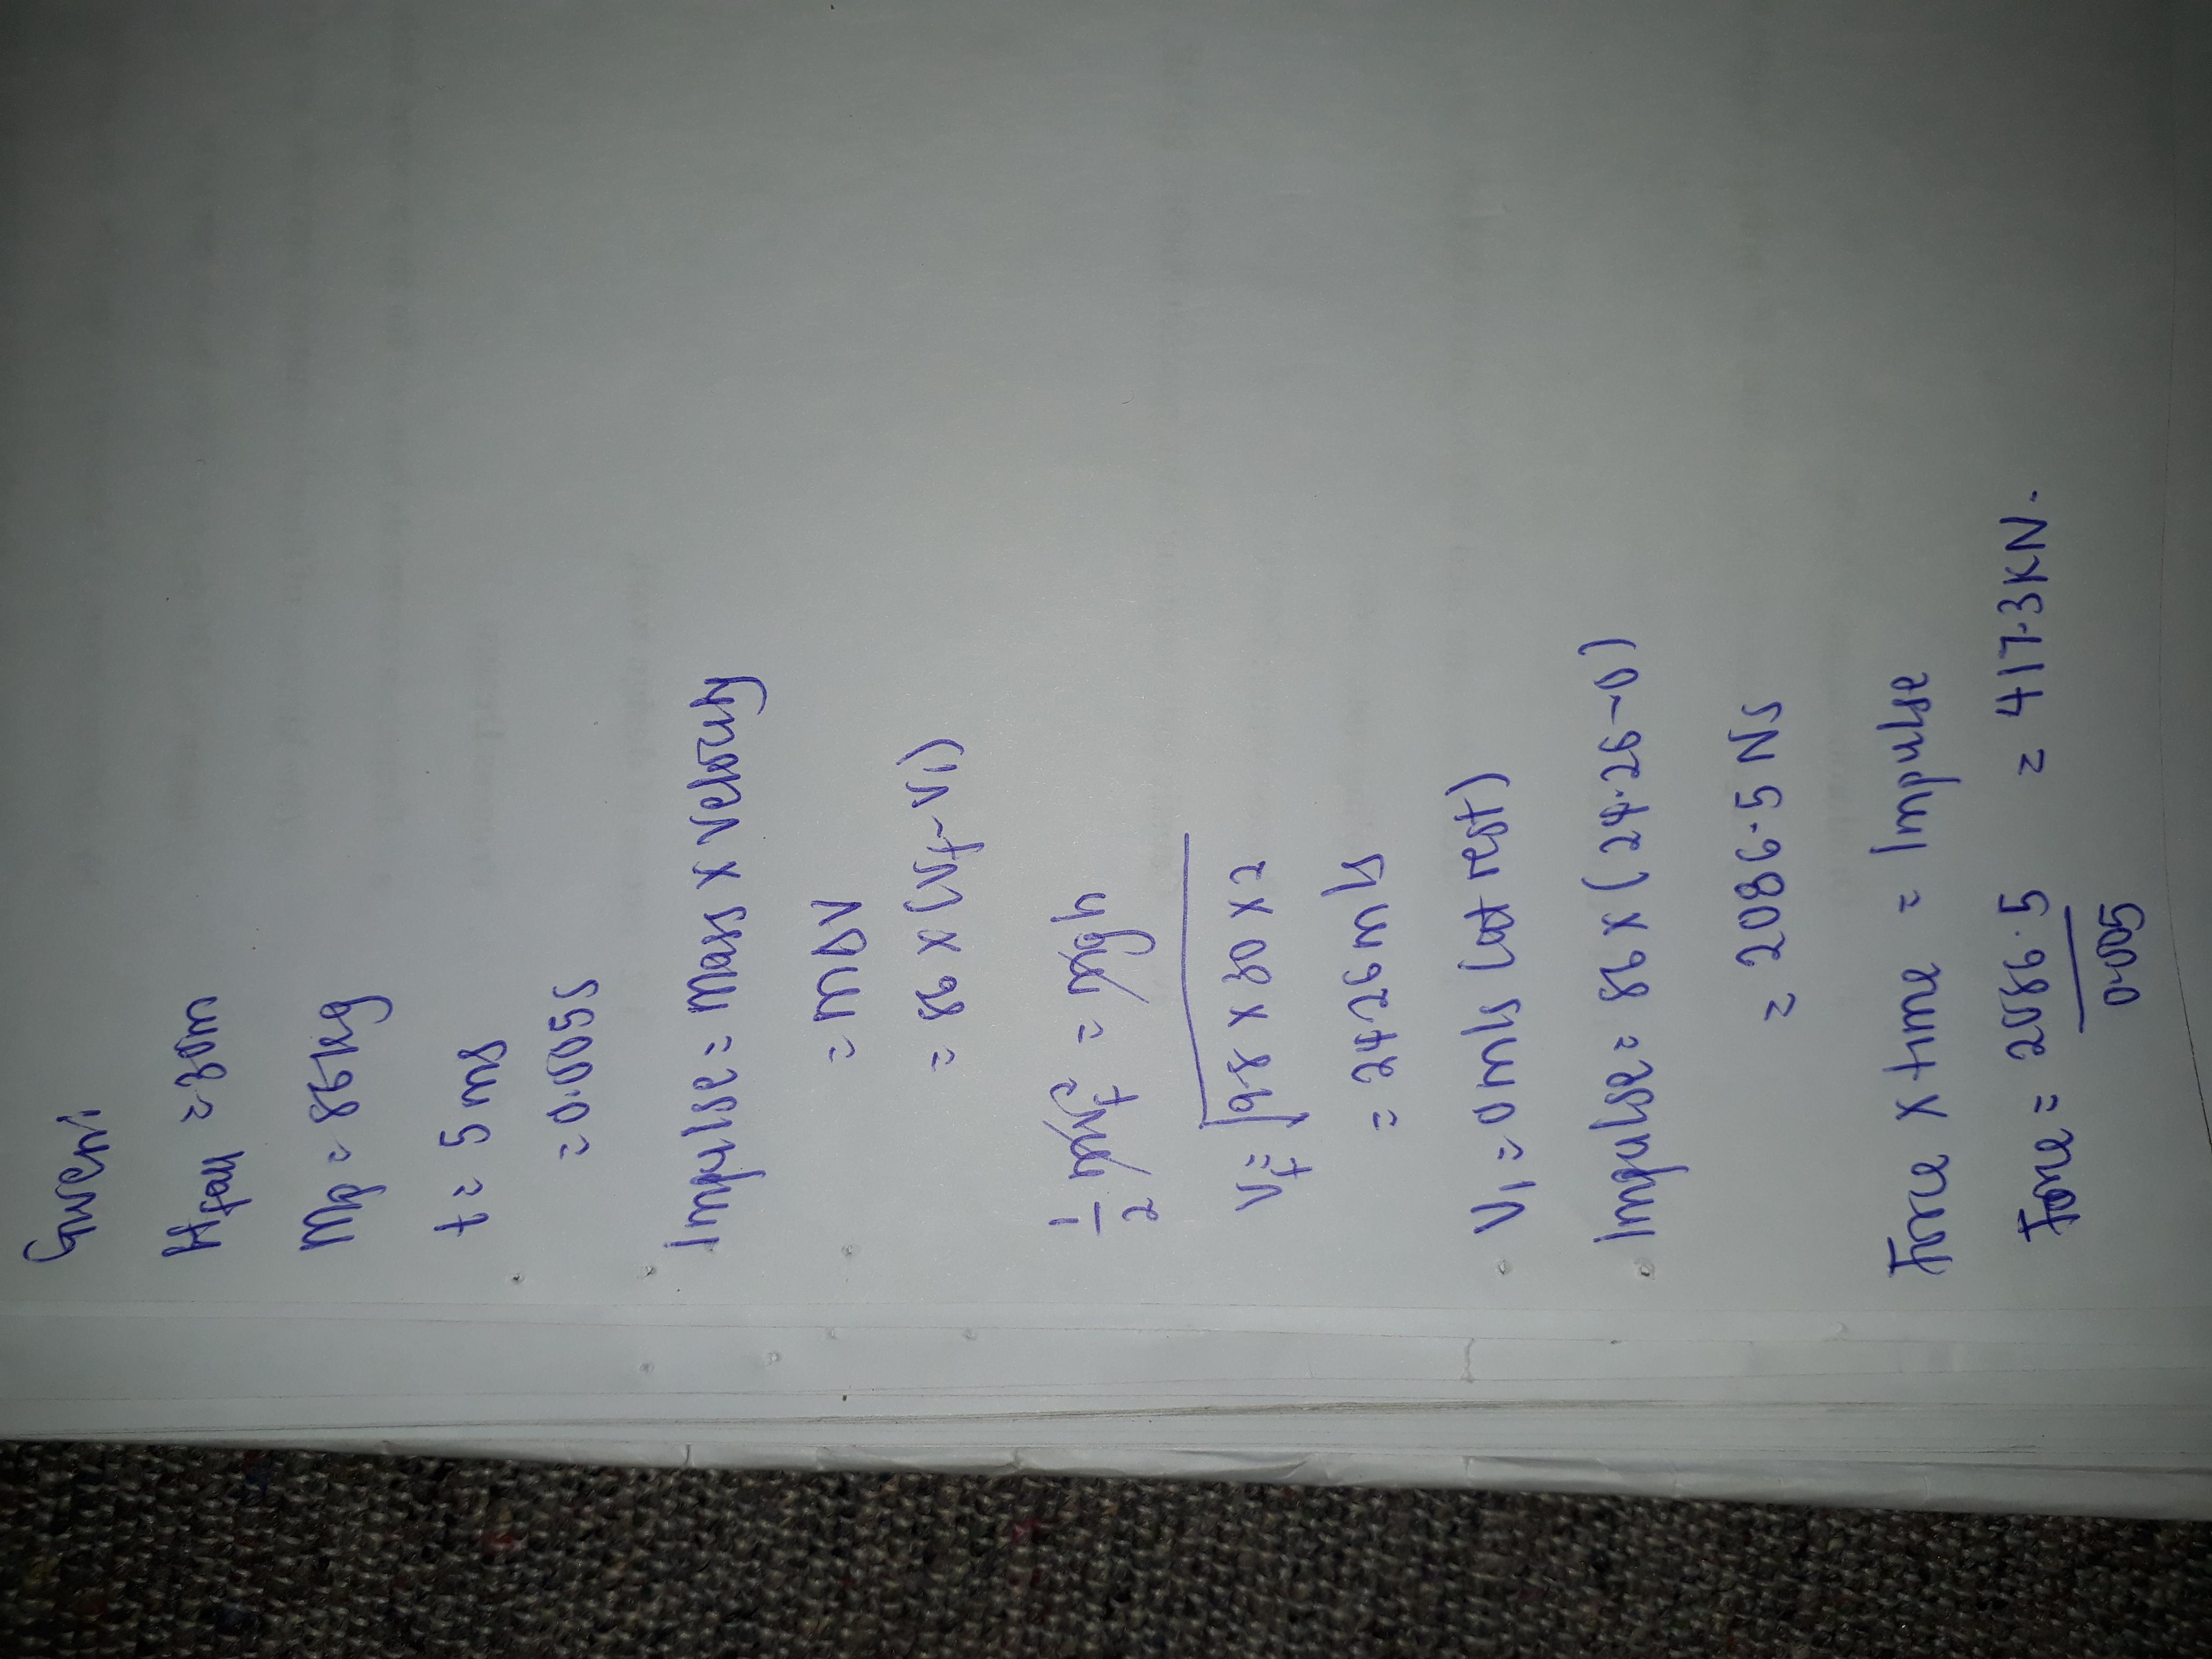 Given:
Hfall = 30m
Mp = 86kg
t = 5 ms
= 0.005s
Impulse = Mass x velocity
= mΔV
= 86 x (Vf - Vi)
1/2 mVf² = mgh
Vf = √9.8 x 30 x 2
= 24.26 m/s
Vi = 0 m/s (at rest)
Impulse = 86 x (24.26-0)
= 2086.5 Ns
Force x time = Impulse
Force = 2086.5/0.005 = 417.3KN.